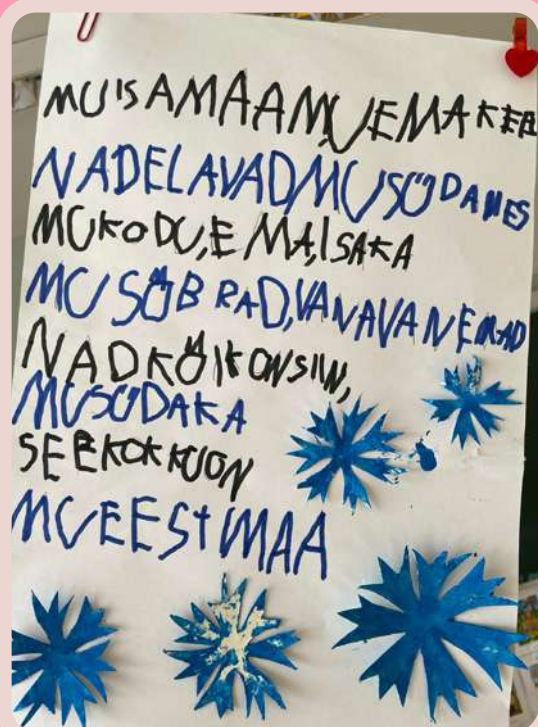 MU ISAMAA MU EMAKEEL
NAD ELAVAD MU SÜDAMES
MU KODU, EMA, ISA KA
MU SÕBRAD, VANAVANEMAD
NAD KÕIK ON SIIN,
MU SÜDA KA
SEE KOKKU ON
MU EESTIMAA